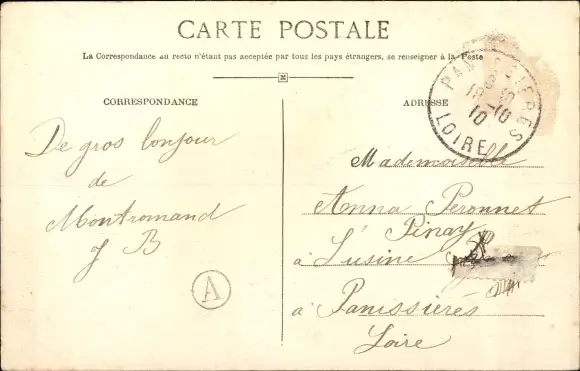 CARTE POSTALE
La Correspondance au recto n'étant pas acceptée par tous les pays étrangers, se renseigner à la Poste
CORRESPONDANCE
ADRESSE
PANISSIERES
18-10
10
LOIRE
De gros bonjour
de
Montromand
J B
A
Mademoiselle
Anna Peronnet
Pinay
à L'usine
à Panissières
Loire